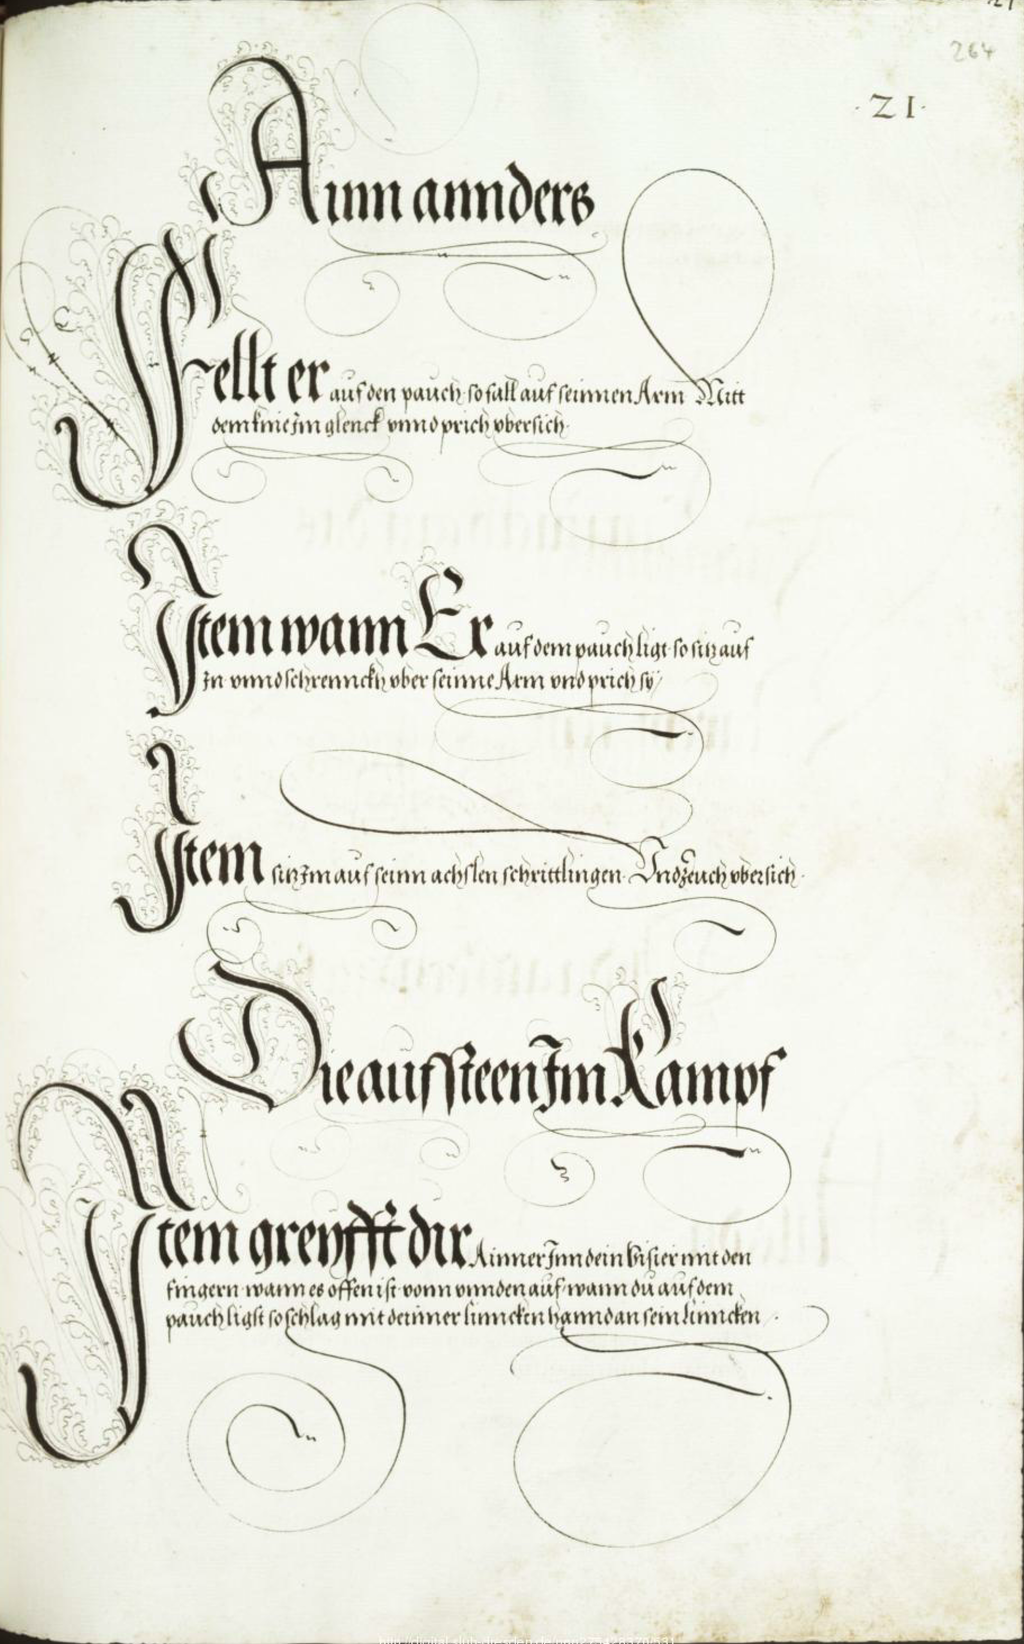 264
·21·
Ainn annders
Fellt er auf den pauch so fall auf seinnen Arm Mitt
dem knie jm glenck vnnd prich vbersich·
Jtem wann Er auf dem pauch ligt so sitz auf
Jn vnnd schrennckh vber seinne Arm vnd prich sÿ
Jtem sitz Jm auf seinn achslen schrittlingen Vnd zeuch vbersich·
Die aufsteen Jm Kampf
Jtem greyfft dir Ainner Jnn dein visier mit den
fingern wann es offen ist vonn vnnden auf wann du auf dem
pauch ligst so schlag mit deinner linncken hannd an sein linncken